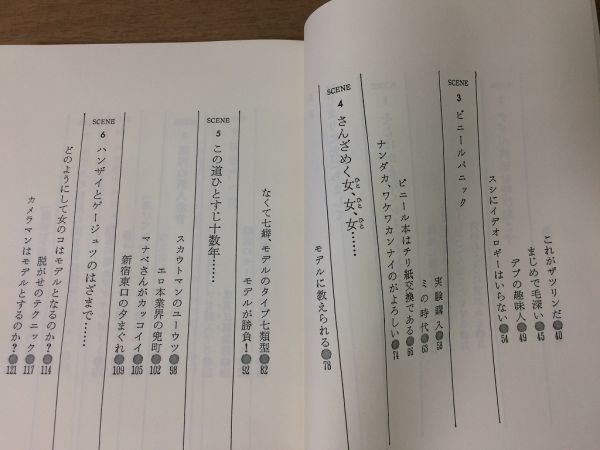 これがザツリンだ●40
まじめで毛深い●45
デブの趣味人●49
スシにイデオロギーはいらない●54
SCENE 3 ビニールパニック
実験購入●58
ミの時代●63
ビニール本はチリ紙交換である●66
ナンダカ、ワケワカンナイのがよろしい●74
SCENE 4 さんざめく女、女、女……
ひと ひと ひと
モデルに教えられる●78
なくて七癖、モデルのタイプ七類型●82
モデルが勝負!●92
SCENE 5 この道ひとすじ十数年……
スカウトマンのユーウツ●98
エロ本業界の兜町●102
マナベさんがカッコイイ●105
新宿東口の夕まぐれ●109
SCENE 6 ハンザイとゲージュツのはざまで……
どのようにして女のコはモデルとなるのか?●114
脱がせのテクニック●117
カメラマンはモデルとするのか?●121